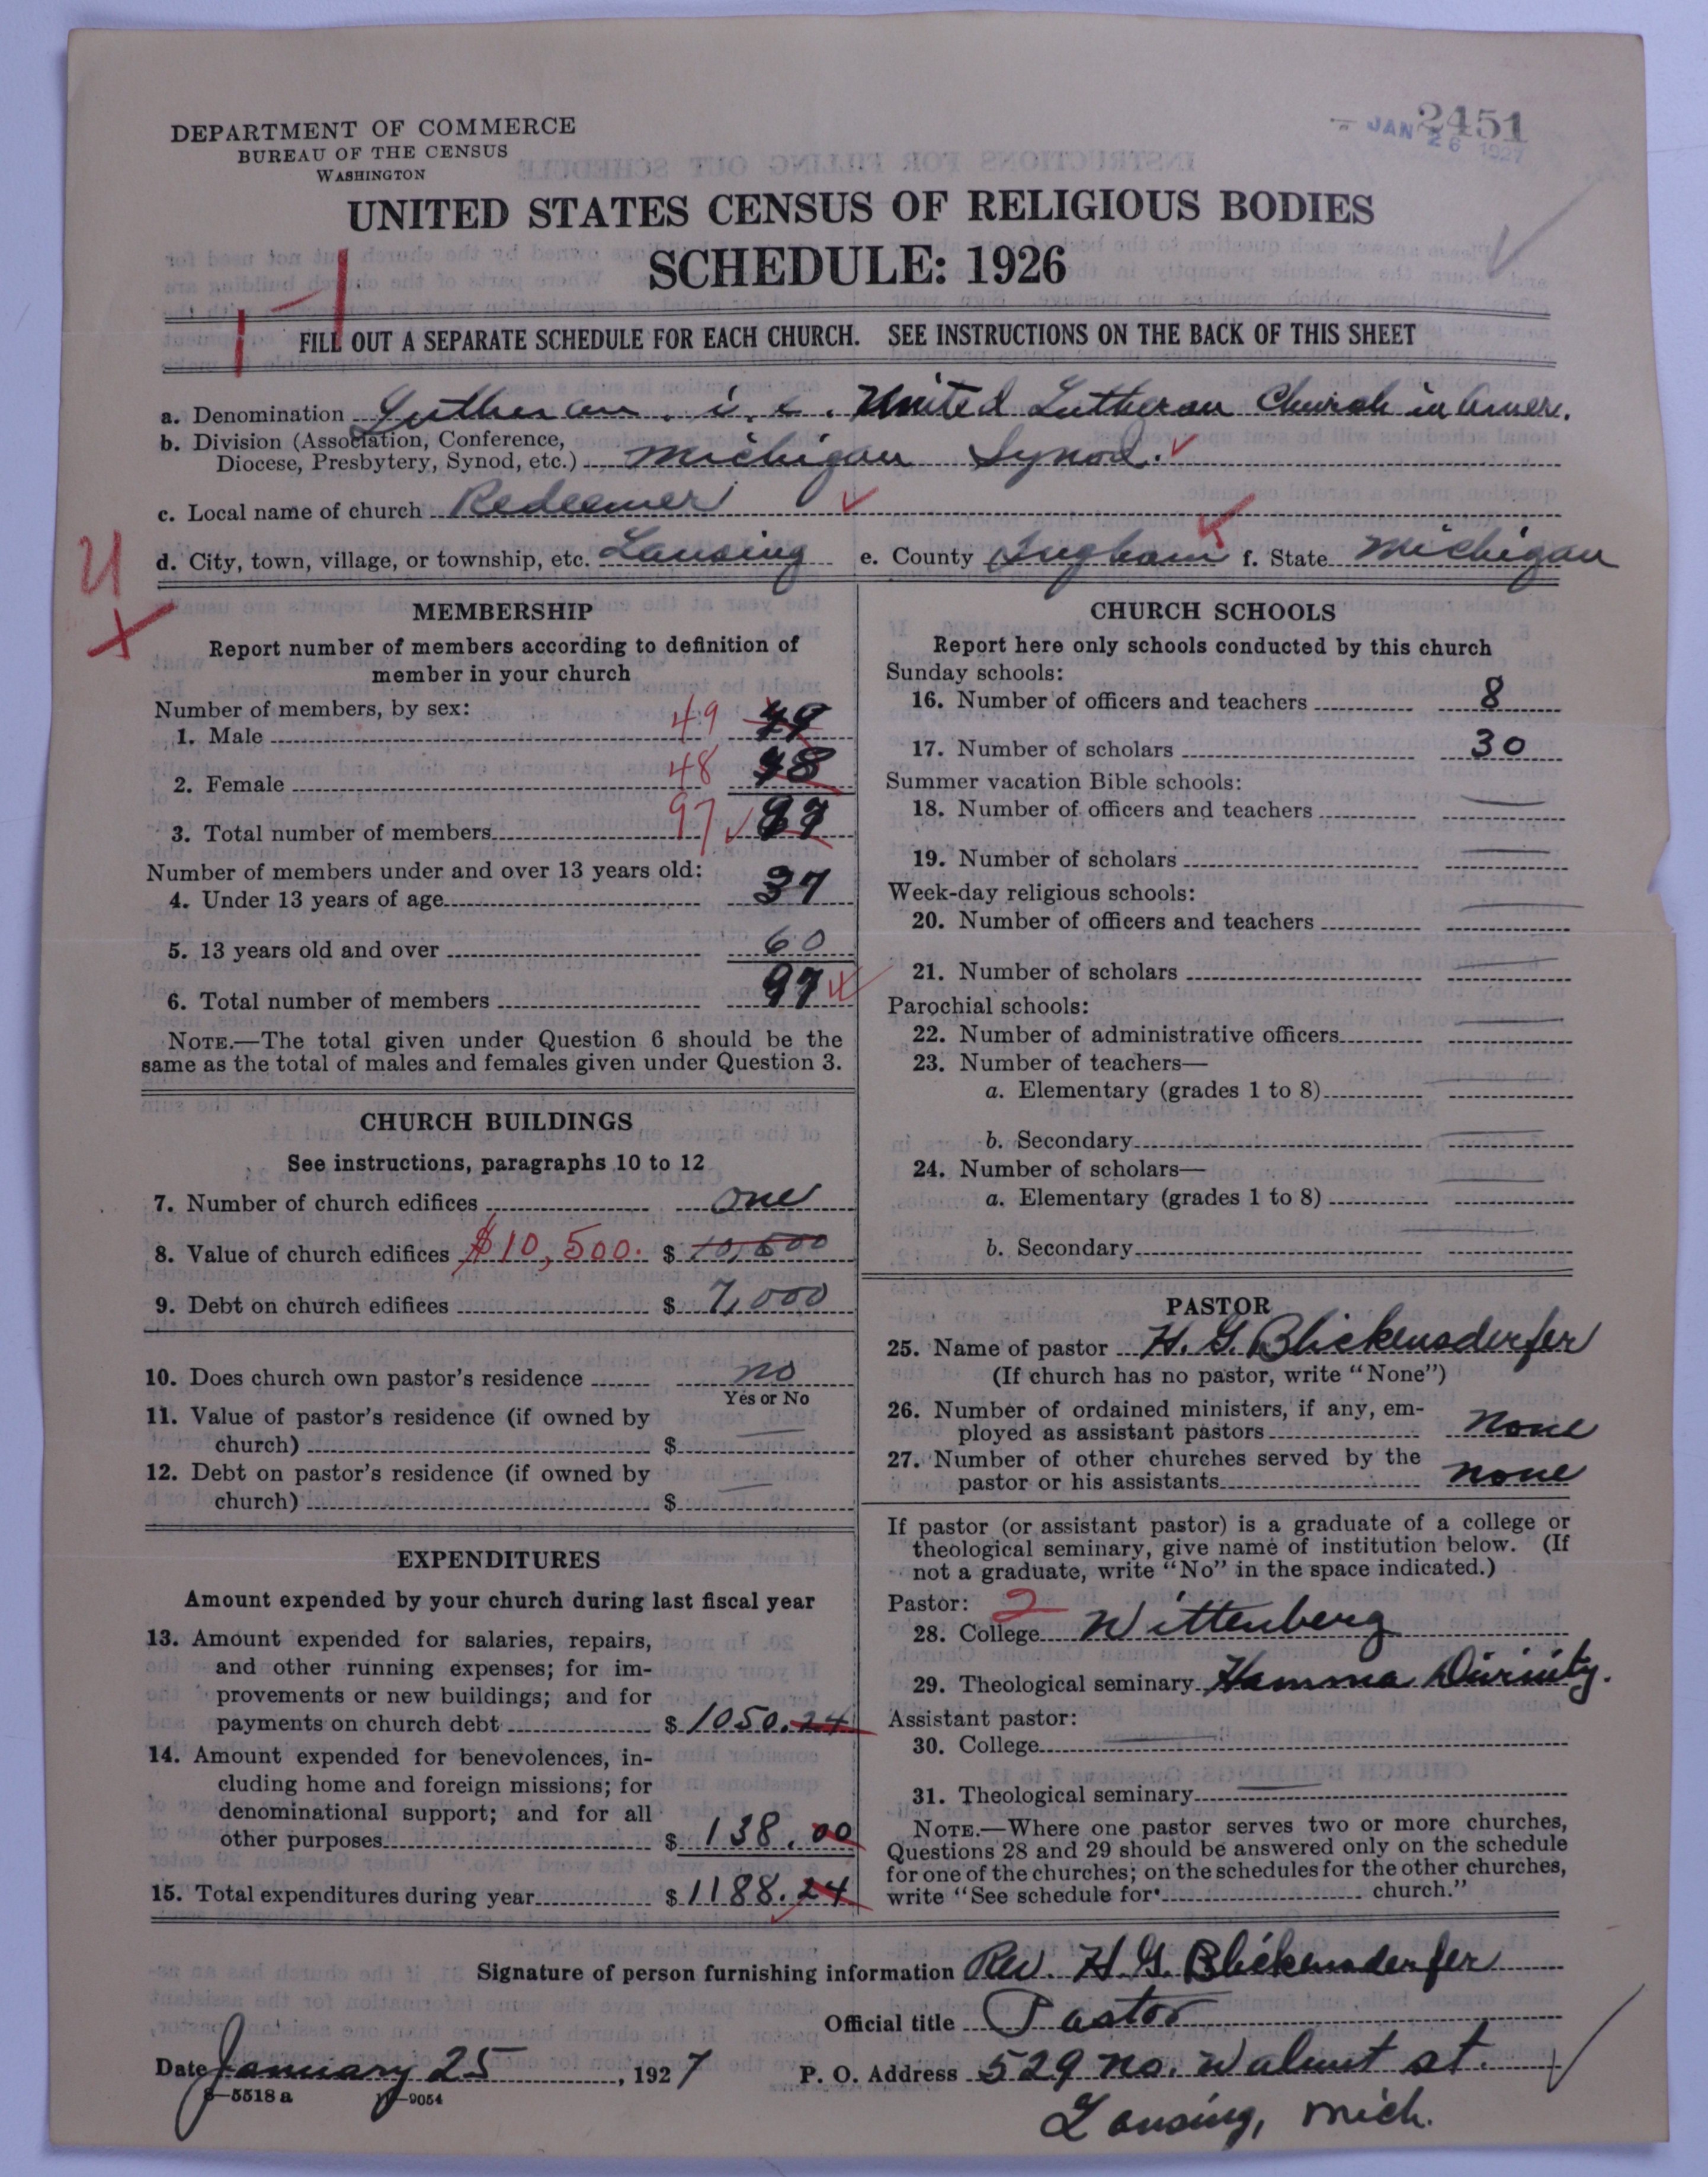 2451
JAN 26 1927
DEPARTMENT OF COMMERCE
BUREAU OF THE CENSUS
WASHINGTON
UNITED STATES CENSUS OF RELIGIOUS BODIES
SCHEDULE: 1926
FILL OUT A SEPARATE SCHEDULE FOR EACH CHURCH. SEE INSTRUCTIONS ON THE BACK OF THIS SHEET
a. Denomination Lutheran. i. e. United Lutheran Church in Amer.
b. Division (Association, Conference,
Diocese, Presbytery, Synod, etc.) Michigan Synod.
c. Local name of church Redeemer
d. City, town, village, or township, etc. Lansing e. County Ingham f. State Michigan
U
MEMBERSHIP
Report number of members according to definition of
member in your church
Number of members, by sex:
1. Male 49 49
2. Female 48 48
3. Total number of members 97 97
Number of members under and over 13 years old:
4. Under 13 years of age 37
5. 13 years old and over 60
6. Total number of members 97
NOTE.—The total given under Question 6 should be the
same as the total of males and females given under Question 3.
CHURCH BUILDINGS
See instructions, paragraphs 10 to 12
7. Number of church edifices one
8. Value of church edifices $10,500. $ 10,500
9. Debt on church edifices $ 7,000
10. Does church own pastor's residence no
Yes or No
11. Value of pastor's residence (if owned by
church) $
12. Debt on pastor's residence (if owned by
church) $
EXPENDITURES
Amount expended by your church during last fiscal year
13. Amount expended for salaries, repairs,
and other running expenses; for im-
provements or new buildings; and for
payments on church debt $ 1050.24
14. Amount expended for benevolences, in-
cluding home and foreign missions; for
denominational support; and for all
other purposes $ 138.00
15. Total expenditures during year $ 1188.24
CHURCH SCHOOLS
Report here only schools conducted by this church
Sunday schools:
16. Number of officers and teachers 8
17. Number of scholars 30
Summer vacation Bible schools:
18. Number of officers and teachers
19. Number of scholars
Week-day religious schools:
20. Number of officers and teachers
21. Number of scholars
Parochial schools:
22. Number of administrative officers
23. Number of teachers—
a. Elementary (grades 1 to 8)
b. Secondary
24. Number of scholars—
a. Elementary (grades 1 to 8)
b. Secondary
PASTOR
25. Name of pastor H. G. Blickensderfer
(If church has no pastor, write "None")
26. Number of ordained ministers, if any, em-
ployed as assistant pastors None
27. Number of other churches served by the
pastor or his assistants none
If pastor (or assistant pastor) is a graduate of a college or
theological seminary, give name of institution below. (If
not a graduate, write "No" in the space indicated.)
Pastor: 2
28. College Wittenberg
29. Theological seminary Hamma Divinity.
Assistant pastor:
30. College
31. Theological seminary
NOTE.—Where one pastor serves two or more churches,
Questions 28 and 29 should be answered only on the schedule
for one of the churches; on the schedules for the other churches,
write "See schedule for church."
Signature of person furnishing information Rev. H. G. Blickensderfer
Official title Pastor
Date January 25, 1927 P. O. Address 529 no. Walnut st.
8—5518 a 11—9054
Lansing, Mich.